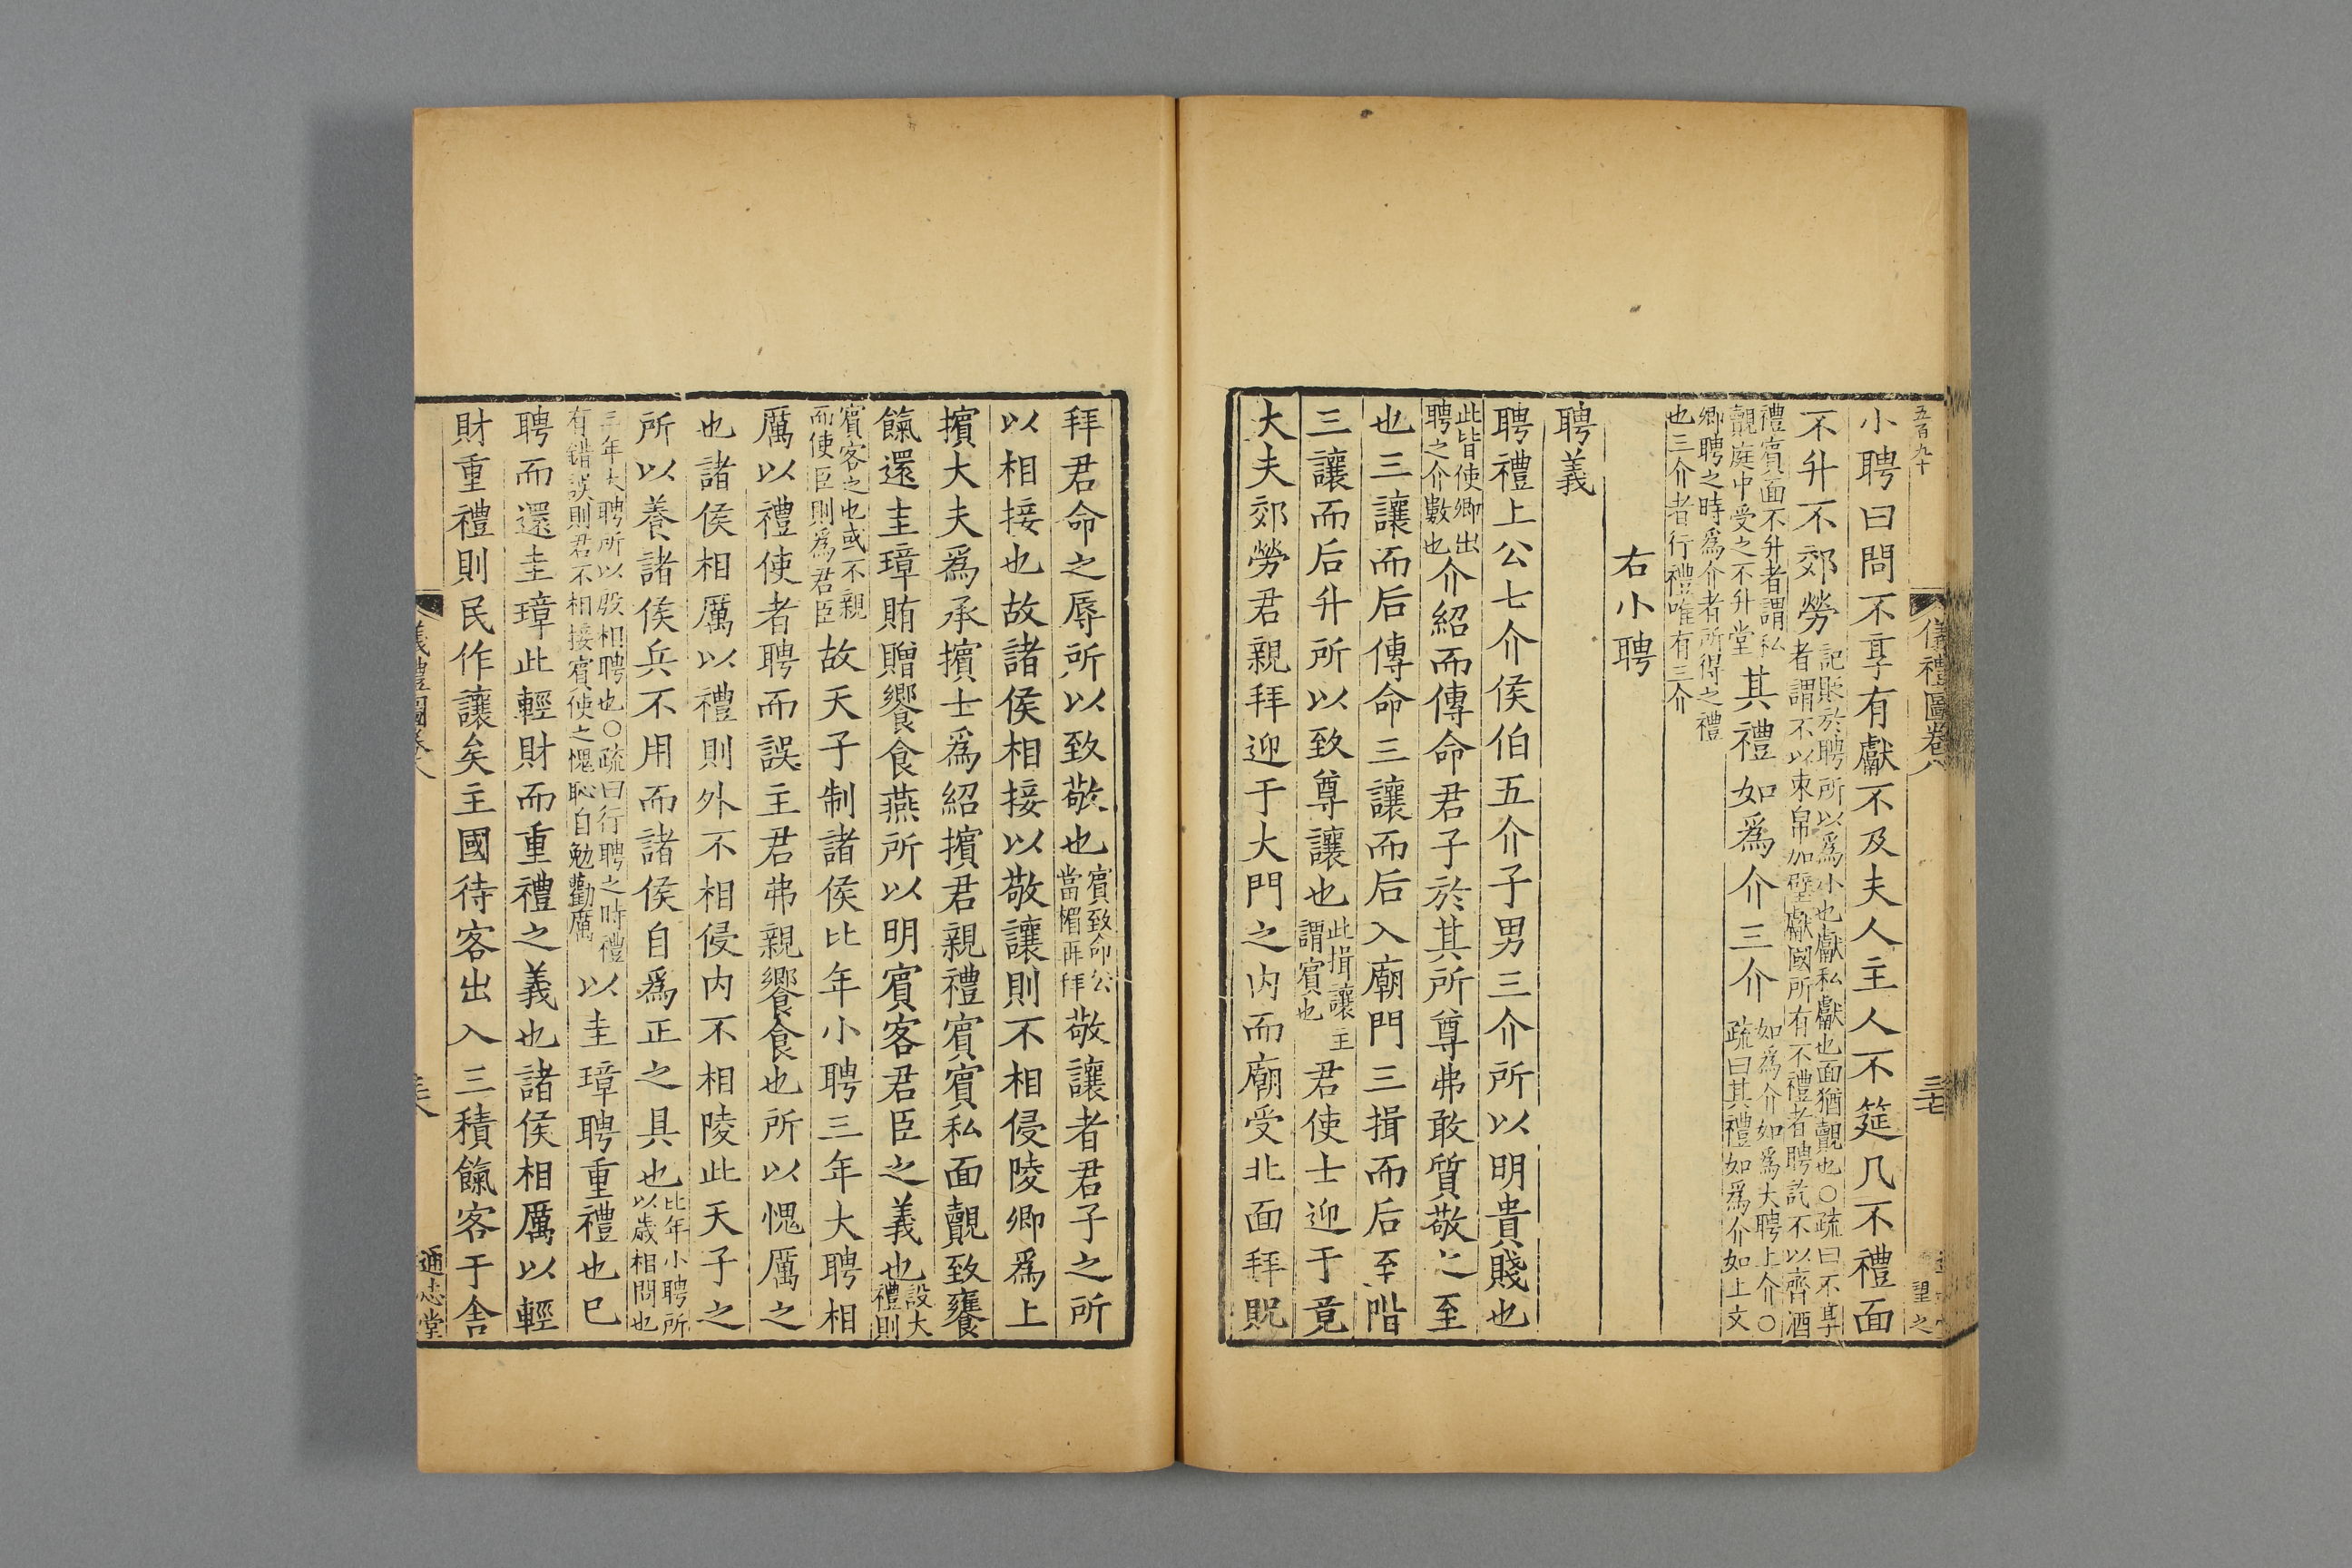 五百九十
儀禮圖卷八
三七
望之
小聘曰問不享有獻不及夫人主人不筵几不禮面
不升不郊勞
記貶於聘所以爲小也獻私獻也面猶覿也○疏曰不享
者謂不以束帛加璧獻國所有不禮者聘訖不以齊酒
禮賓面不升者謂私
覿庭中受之不升堂
其禮如爲介三介
如爲介如爲大聘上介○
疏曰其禮如爲介如上文
卿聘之時爲介者所得之禮
也三介者行禮唯有三介
右小聘
聘義
聘禮上公七介侯伯五介子男三介所以明貴賤也
此皆使卿出
聘之介數也
介紹而傳命君子於其所尊弗敢質敬之至
也三讓而后傳命三讓而后入廟門三揖而后至階
三讓而后升所以致尊讓也
此揖讓主
謂賓也
君使士迎于竟
大夫郊勞君親拜迎于大門之内而廟受北面拜貺
拜君命之辱所以致敬也
賓致命公
當楣再拜
敬讓者君子之所
以相接也故諸侯相接以敬讓則不相侵陵卿爲上
擯大夫爲承擯士爲紹擯君親禮賓賓私面覿致饔
餼還圭璋賄贈饗食燕所以明賓客君臣之義也
設大
禮則
賓客之也或不親
而使臣則爲君臣
故天子制諸侯比年小聘三年大聘相
厲以禮使者聘而誤主君弗親饗食也所以愧厲之
也諸侯相厲以禮則外不相侵内不相陵此天子之
所以養諸侯兵不用而諸侯自爲正之具也
比年小聘所
以歲相問也
三年大聘所以殷相聘也○疏曰行聘之時禮
有錯誤則君不相接賓使之愧恥自勉勸厲
以圭璋聘重禮也已
聘而還圭璋此輕財而重禮之義也諸侯相厲以輕
財重禮則民作讓矣主國待客出入三積餼客于舍
儀禮圖卷八
通志堂